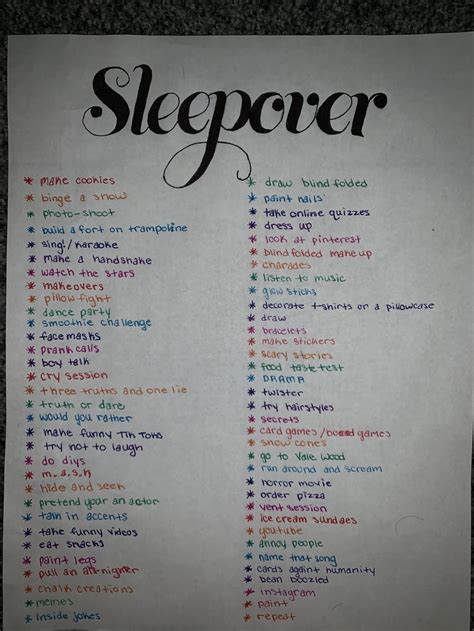 Sleepover
* make cookies
* binge a show
* photo-shoot
* build a fort on trampoline
* sing!/karaoke
* make a handshake
* watch the stars
* makeovers
* pillow fight
* dance party
* smoothie challenge
* face masks
* prank calls
* boy talk
* cry session
* three truths and one lie
* truth or dare
* would you rather
* make funny Tik Toks
* try not to laugh
* do diys
* m.a.s.h
* hide and seek
* pretend your an actor
* talk in accents
* take funny videos
* eat snacks
* paint legs
* pull an all-nighter
* chalk creations
* memes
* inside jokes
* draw blind folded
* paint nails
* take online quizzes
* dress up
* look at pinterest
* blind folded make up
* charades
* listen to music
* glow sticks
* decorate t-shirts or a pillowcase
* draw
* bracelets
* make stickers
* scary stories
* food taste test
* DRAMA
* twister
* try hairstyles
* secrets
* card games / board games
* snow cones
* go to Vale Wood
* run around and scream
* horror movie
* order pizza
* vent session
* ice cream sundaes
* youtube
* annoy people
* name that song
* cards again't humanity
* bean boozled
* instagram
* paint
* repeat